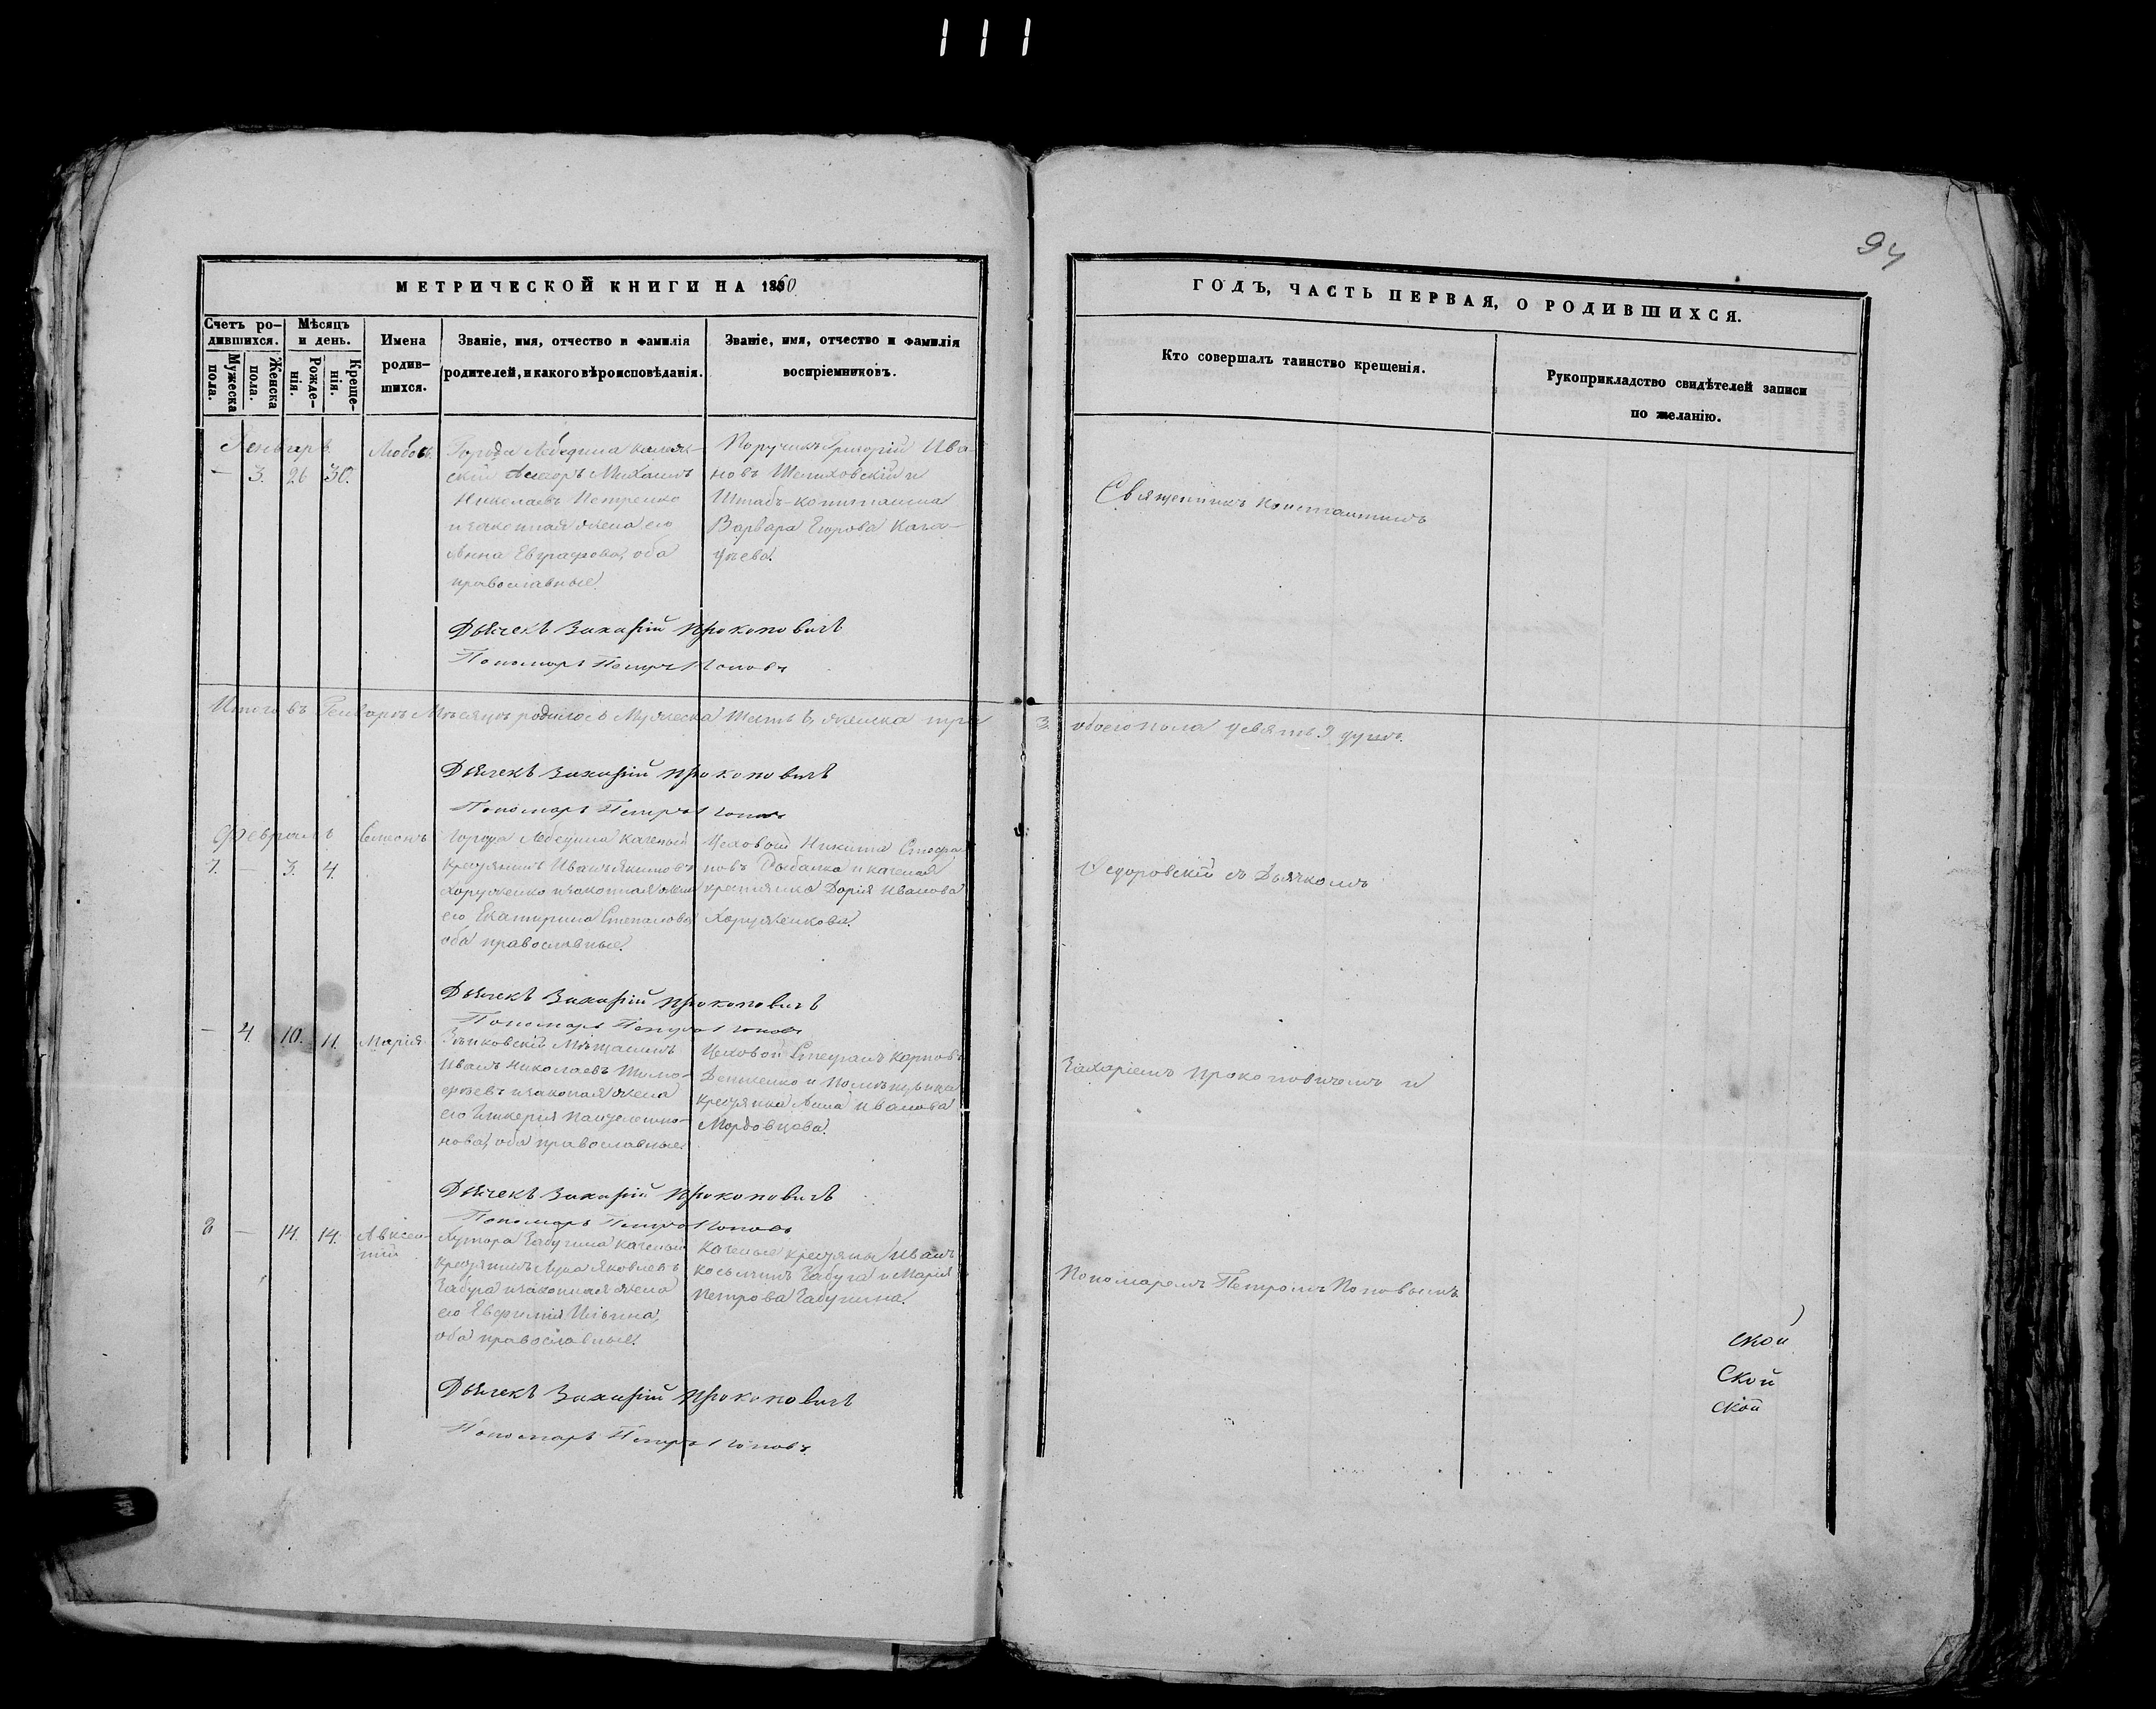 111
94
МЕТРИЧЕСКОЙ КНИГИ НА 1860
Счетъ ро-
дившихся.
Мужеска
пола.
Женска
пола.
Мѣсяцъ
и день.
Рожде-
нія.
Креще-
нія.
Имена
родив-
шихся.
Званіе, имя, отчество и фамилія
родителей, и какого вѣроисповѣданія.
Званіе, имя, отчество и фамилія
воспріемниковъ.
Генварь
— 3. 26 30.
Любовь
Города Лебедина
Михаилъ
Николаевъ Петренко
и законная жена его
Анна Евграфова, оба
православные.
Поручикъ Григорій Ива
новъ и
Штабъ-капитанша
Варвара Егорова
Дьячекъ Захарій Прокоповичь
Пономарь Петръ Поповъ
Итого въ Генварѣ Мѣсяцѣ родилось Мужеска шесть 6, женска три
Дьячекъ Захарій Прокоповичь
Пономарь Петръ Поповъ
Февраль
7. — 3. 4.
Симонъ
Города Лебедина казеный
крестьянинъ Иванъ Якимовъ
Хоруженко и законная жена
его Екатерина Степанова
оба православные.
Цеховой Никита Стефа
новъ Рыбалка и казеная
крестьянка Дарія Иванова
Хоруженкова.
Дьячекъ Захарій Прокоповичь
Пономарь Петръ Поповъ
— 4. 10. 11.
Марія
Зѣньковскій Мѣщанинъ
Иванъ Николаевъ Тимо-
феевъ и законая жена
его Гликерія Пантелеимо-
нова, оба православные.
Цеховой Стефанъ Карповъ
и помѣщицка
крестьянка Анна Иванова
Мордовцова.
Дьячекъ Захарій Прокоповичь
Пономарь Петръ Поповъ
8 — 14. 14.
Авксен-
тий
Хутора казеный
крестьянинъ Лука Яковлевъ
и законная жена
его Евфимія Ильина,
оба православные.
казеные крестьяне Иванъ
Косьминъ и Марія
Петрова
Дьячекъ Захарій Прокоповичь
Пономарь Петръ Поповъ.
ГОДЪ, ЧАСТЬ ПЕРВАЯ, О РОДИВШИХСЯ.
Кто совершалъ таинство крещенія.
Рукоприкладство свидѣтелей записи
по желанію.
Священникъ Константинъ
3. обоего пола девять 9 душъ.
Федоровскій съ Дьячкомъ
Захаріемъ Прокоповичемъ и
Пономаремъ Петромъ Поповымъ.
ской
Ской
ской